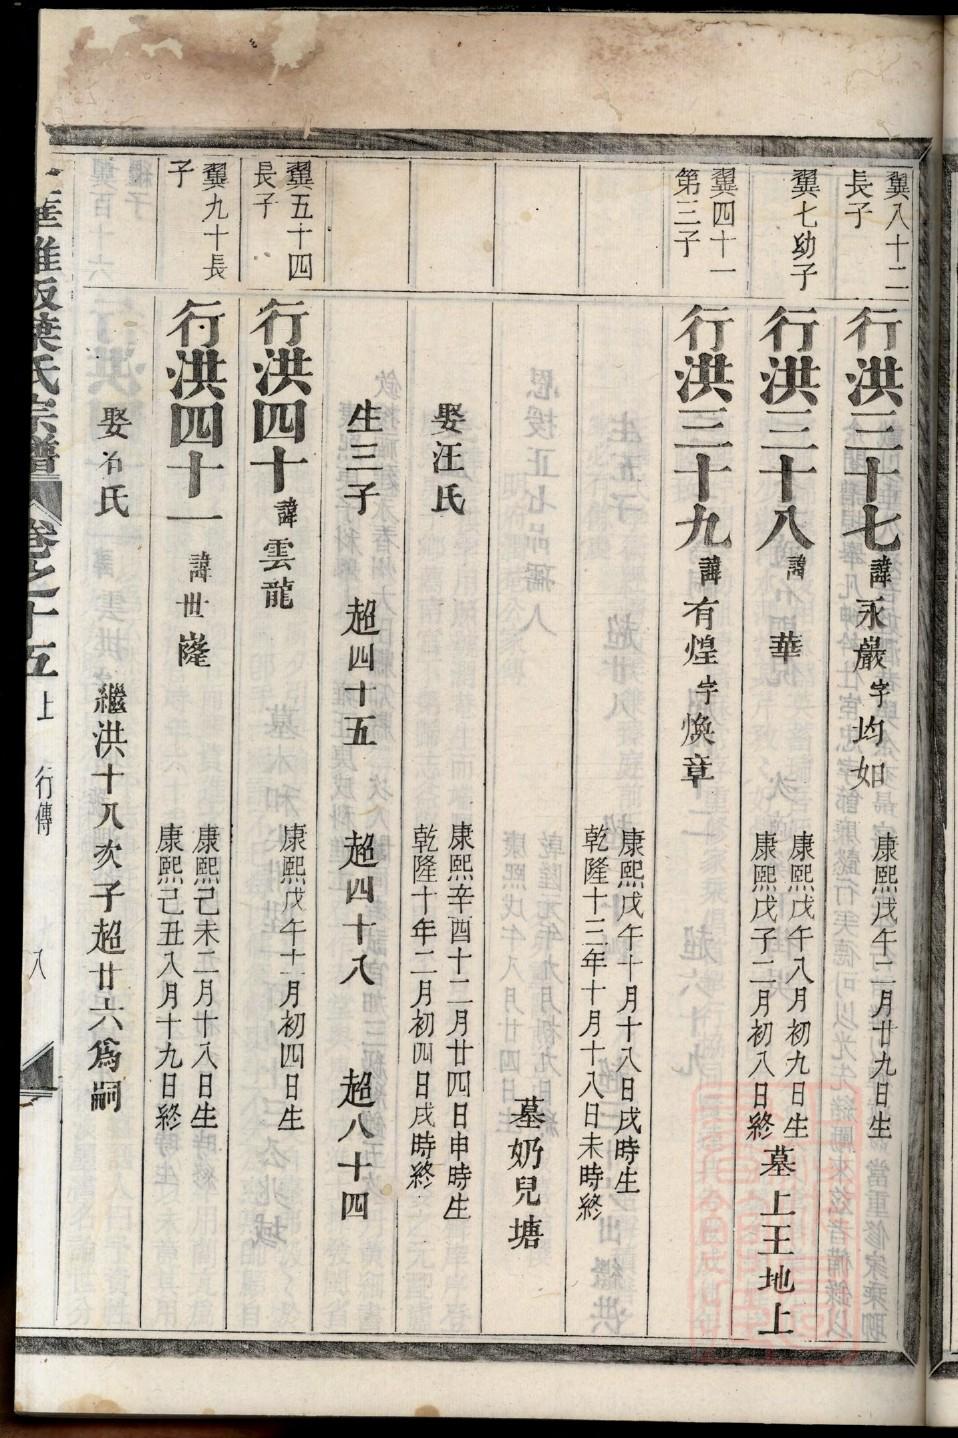 翼八十二
長子
行洪三十七諱永嚴字均如
康熙戊午二月廿九日生
翼七幼子
行洪三十八諱華
康熙戊午八月初九日生
康熙戊子二月初八日終
墓上王地上
翼四十一
第三子
行洪三十九諱有煌字煥章
康熙戊午十月十八日戌時生
乾隆十三年十月十八日未時終
墓奶兒塘
娶汪氏
康熙辛酉十二月廿四日申時生
乾隆十年二月初四日戌時終
生三子 超四十五 超四十八 超八十四
翼五十四
長子
行洪四十諱雲龍
康熙戊午十二月初四日生
翼九十長
子
行洪四十一諱世隆
康熙己未二月廿八日生
康熙己丑八月十九日終
娶 氏 繼洪十八次子超廿六爲嗣
華雅坂葉氏宗譜 卷之十五 上 行傳 八